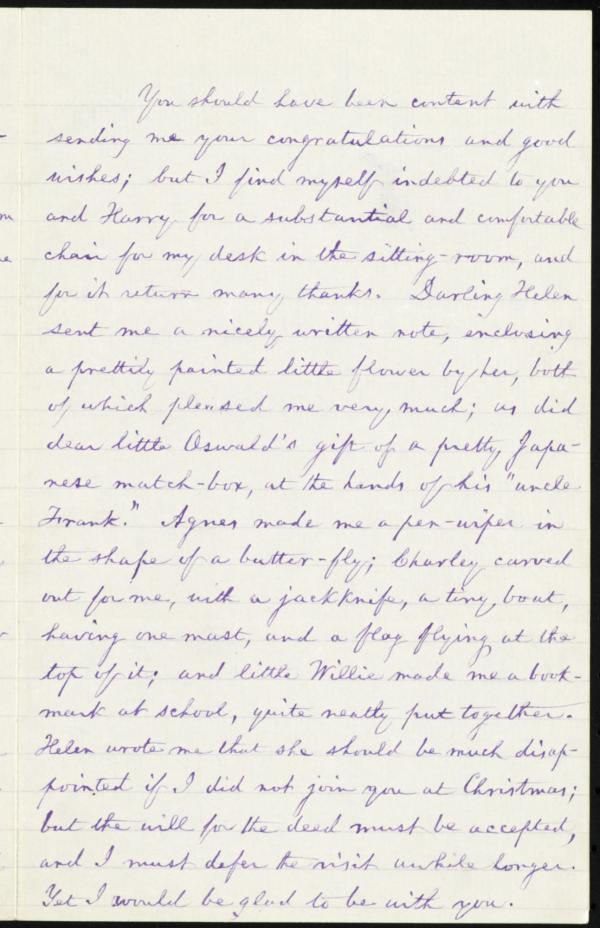 You should have been content with
sending me your congratulations and good
wishes; but I find myself indebted to you
and Harry for a substantial and comfortable
chair for my desk in the sitting-room, and
for it return many thanks. Darling Helen
sent me a nicely written note, enclosing
a prettily painted little flower by her, both
of which pleased me very much; as did
dear little Oswald's gift of a pretty Japa-
nese match-box, at the hands of his "uncle
Frank." Agnes made me a pen-wiper in
the shape of a butter-fly; Charley carved
out for me, with a jackknife, a tiny boat,
having one mast, and a flag flying at the
top of it; and little Willie made me a book-
mark at school, quite neatly put together.
Helen wrote me that she should be much disap-
pointed if I did not join you at Christmas;
but the will for the deed must be accepted,
and I must defer the visit awhile longer.
Yet I would be glad to be with you.